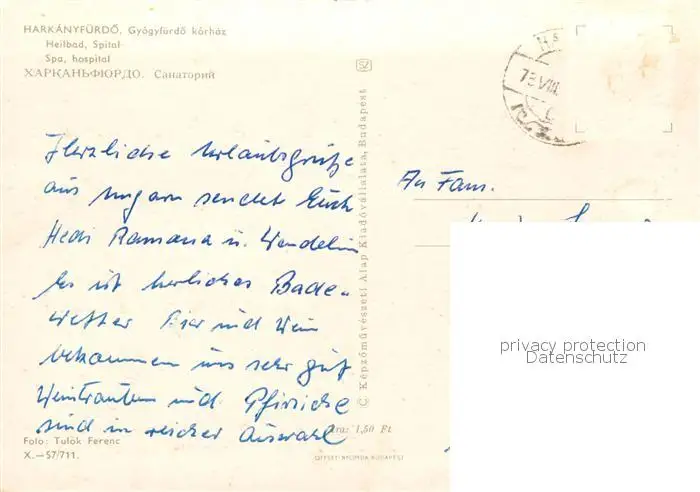 HARKÁNYFÜRDŐ, Gyógyfürdő kórház
Heilbad, Spital
Spa, hospital
ХАРКАНЬФЮРДО. Санаторий
Herzliche Urlaubsgrüße
aus Ungarn sendet Euch
Hedi Ramana u. Wendelin
Es ist herliches Bade-
wetter Bier und Wein
bekommen uns sehr gut
Weintrauben und Pfirsiche
sind in reicher Auswahl
Foto: Tulök Ferenc
X.—57/711.
SZ
© Képzőművészeti Alap Kiadóvállalata, Budapest
Ára: 1,50 Ft.
OFFSET-NYOMDA BUDAPEST
An Fam.
privacy protection
Datenschutz